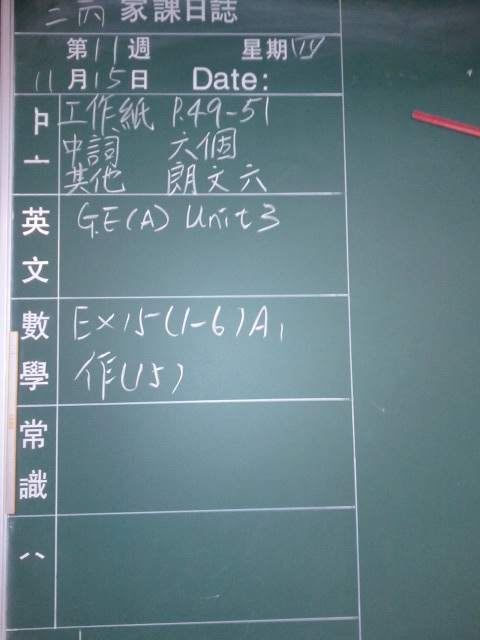 二丙 家課日誌
第11週 星期四
11月15日 Date:
工作紙 P.49-51
中詞 六個
其他 朗文六
英文 G.E(A) Unit 3
數學 Ex15(1-6)A,
作(15)
常識